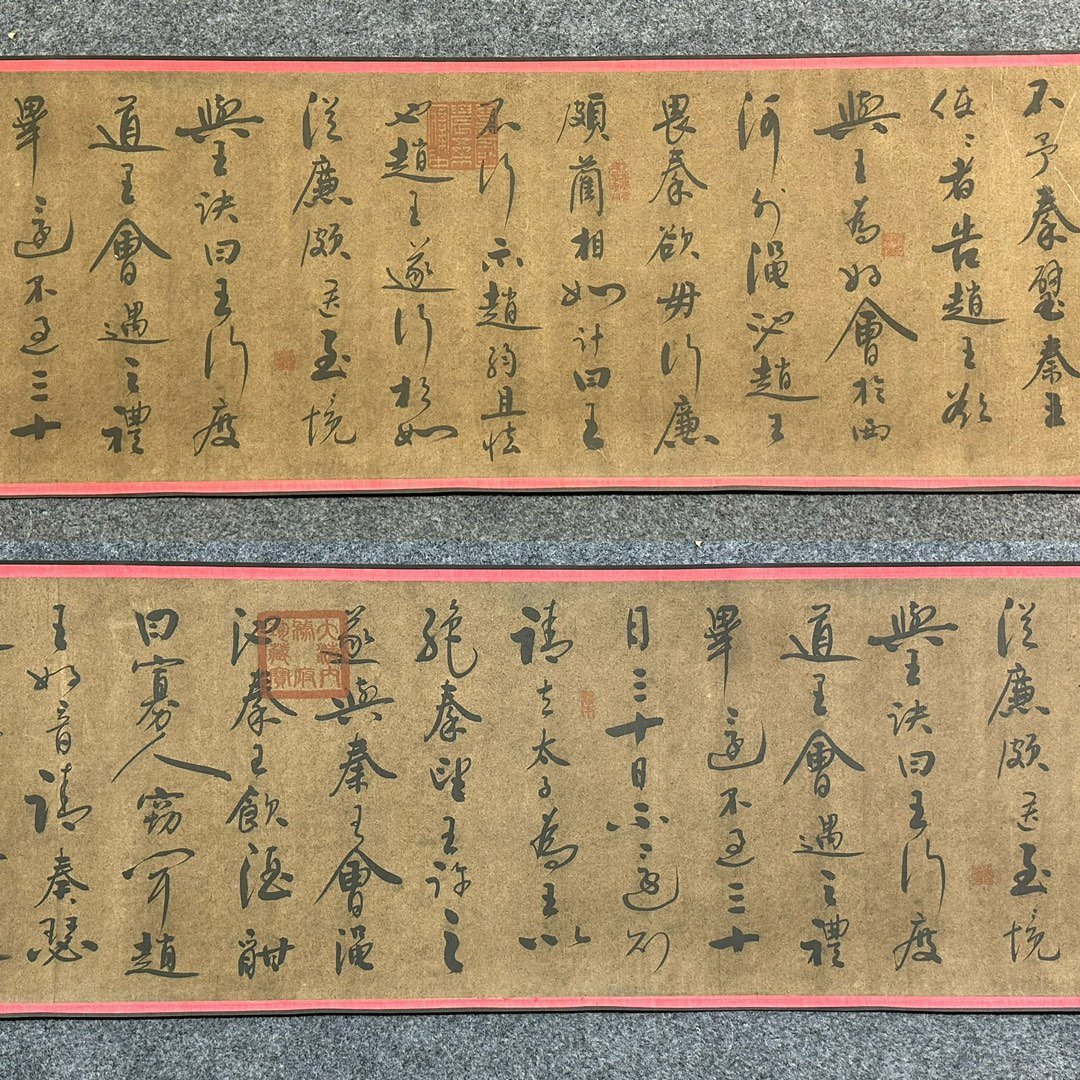 不予秦璧秦王
使〻者告趙王欲
與王為好會於西
河外澠池趙王
畏秦欲毋行廉
頗藺相如計曰王
不行示趙弱且怯
也趙王遂行相如
從廉頗送至境
與王訣曰王行度
道里會遇之禮
畢還不過三十
從廉頗送至境
與王訣曰王行度
道里會遇之禮
畢還不過三十
日三十日不還則
請立太子為王以
絕秦望王許之
遂與秦王會澠
池秦王飲酒酣
曰寡人竊聞趙
王好音請奏瑟